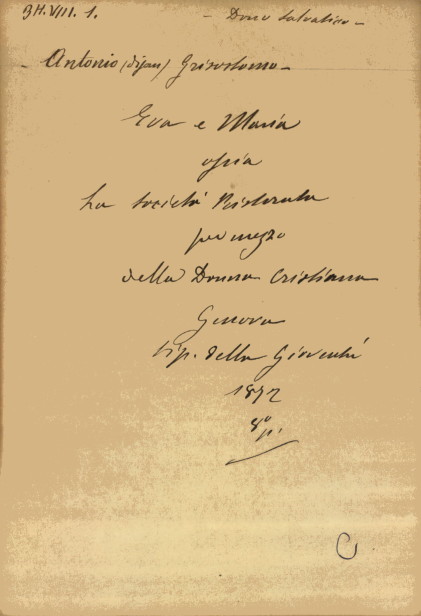 BH.VIII. 1. - Dono Salvatico -
- Antonio (di Gian) Grisostomo -
Eva e Maria
ossia
La Società Ristorata
per mezzo
della Donna Cristiana
Genova
tip. della Gioventù
1872
8º
p.
C